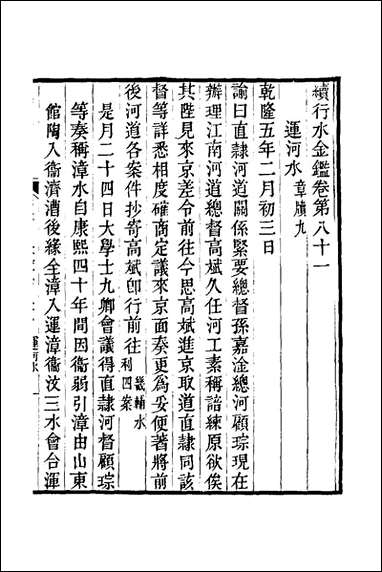 續行水金鑑卷第八十一
運河水 章牘九
乾隆五年二月初三日
諭曰直隸河道關係緊要總督孫嘉淦總河顧琮現在
辦理江南河道總督高斌久任河工素稱諳練原欲俟
其陛見來京差令前往今思高斌進京取道直隸同該
督等詳悉相度確商定議來京面奏更為妥便著將前
後河道各案件抄寄高斌卽行前往 畿輔水利四案
是月二十四日大學士九卿會議得直隸河督顧琮
等奏稱漳水自康熙四十年間因衞弱引漳由山東
館陶入衞濟漕後緣全漳入運漳衞汶三水會合渾